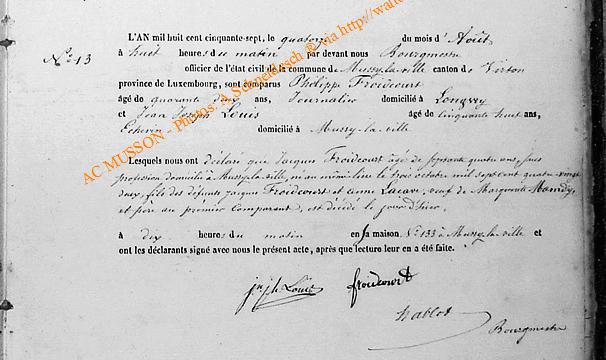 N.º 13
L'AN mil huit cent cinquante-sept, le quatorze du mois d'Août
à huit heures du matin par devant nous Bourgmestre
officier de l'état civil de la commune de Mussy-la-ville canton de Virton
province de Luxembourg, sont comparus Philippe Froidcourt
âgé de quarante deux ans, Journalier domicilié à Longwy
et Jean Joseph Louis âgé de cinquante huit ans,
Echevin domicilié à Mussy-la-ville
Lesquels nous ont déclaré que Jacques Froidcourt âgé de septante quatre ans, sans
profession domicilié à Mussy-la-ville, né au même lieu le trois octobre mil sept cent quatre-vingt
deux, fils des défunts Jacques Froidcourt et Anne Lacave, veuf de Marguerite
et père au premier Comparant, est décédé le jour d'hier
à dix heures du matin en sa maison N.º 133 à Mussy-la-ville et
ont les déclarants signé avec nous le présent acte, après que lecture leur en a été faite.
jn jh Louis froidcourt
hablot
Bourgmestre
AC MUSSON - Photos: A. Schneidesch ® via http://wal